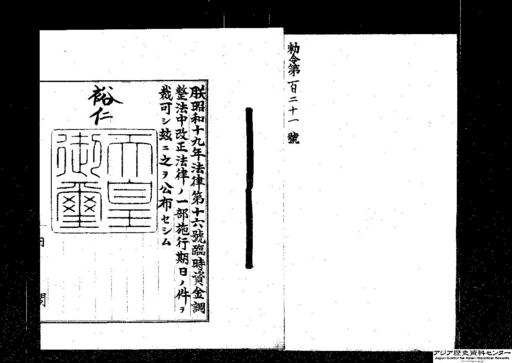 勅令第百二十一號
朕昭和十九年法律第十六號臨時資金調
整法中改正法律ノ一部施行期日ノ件ヲ
裁可シ玆ニ之ヲ公布セシム
裕仁
天皇
御璽
アジア歴史資料センター
Japan Center for Asian Historical Records